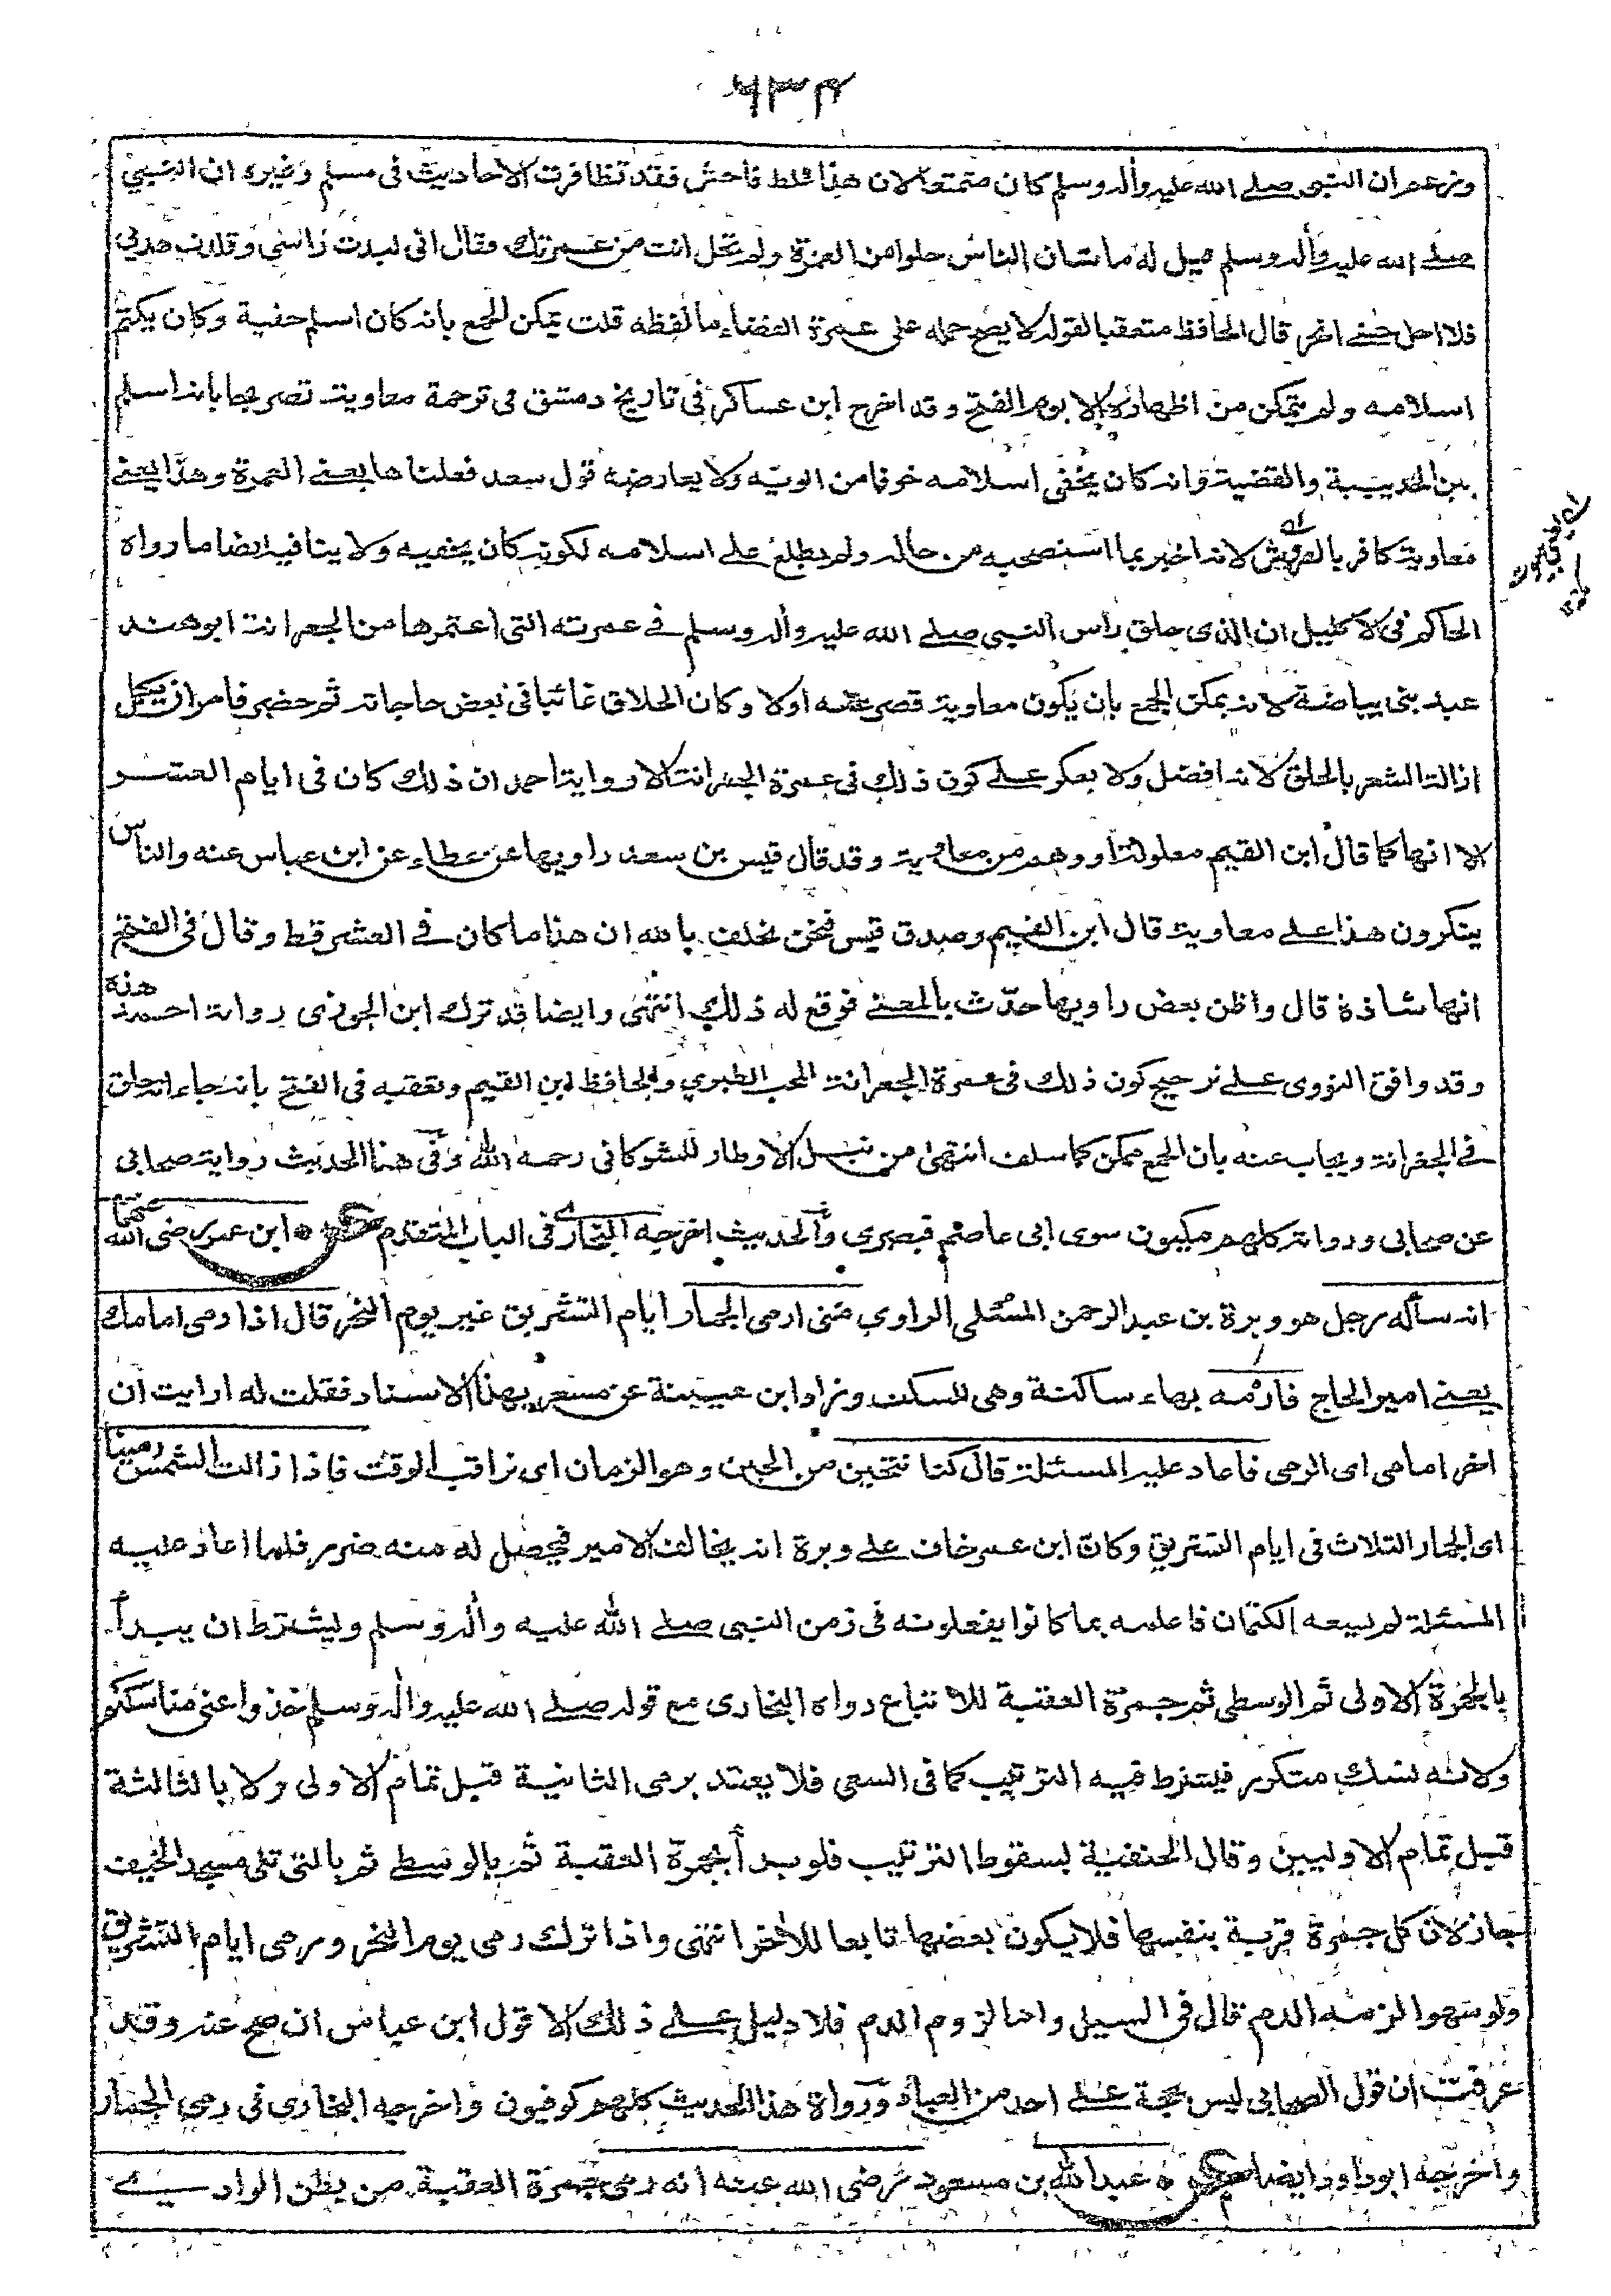 ٦٣٤
وزعم ان النبى صلے الله عليه وأله وسلم كان متمتعا لان هذا غلط فاحش فقد تظافرت الاحاديث فى مسلم وغيره ان النبي
صلے الله عليه وأله وسلم قيل له ما شان الناس حلوا من العمرة ولم تحل انت من عمرتك فقال انى لبدت رأسي وقلدت هديي
فلا احل حتے انحر قال الحافظ متعقبا لقوله لا يصح حمله على عمرة القضاء ما لفظه قلت يمكن الجمع بانه كان اسلم خفية وكان يكتم
اسلامه ولم يتمكن من اظهاره الا يوم الفتح وقد اخرج ابن عساكر فى تاريخ دمشق فى ترجمة معاوية تصريحا بانه اسلم
بين الحديبية والقضية وانه كان يخفى اسلامه خوفا من ابويه ولا يعارضه قول سعد فعلناها يعنے العمرة وهذا يعنے
معاوية كافر بالعرش لانه اخبر بما استصحبه من حاله ولم يطلع على اسلامه لكونه كان يخفيه ولا ينافيه ايضا ما رواه
الحاكم فى الاكليل ان الذى حلق رأس النبي صلے الله عليه وأله وسلم فے عمرته التى اعتمرها من الجعرانة ابو هند
عبد بنى بياضة لانه يمكن الجمع بان يكون معاوية قصر عنه اولا وكان الحلاق غائبا فى بعض حاجاته ثم حضر فامره ان يكمل
ازالة الشعر بالحلق لانه افضل ولا يعكر علے كون ذلك فى عمرة الجعرانة الا رواية احمد ان ذلك كان فى ايام العشر
الا انها كما قال ابن القيم معلولة او وهم من معاوية وقد قال قيس بن سعد راويها عن عطاء عن ابن عباس عنه والناس
ينكرون هذا علے معاوية قال ابن القيم وصدق قيس فنحن نحلف بالله ان هذا ما كان فے العشر قط وقال فى الفتح
انها شاذة قال واظن بعض راويها حدّث بالمعنے فوقع له ذلك انتهى وايضا قد ترك ابن الجوزى رواية احمد هذه
وقد وافق النووى علے ترجيح كون ذلك فى عمرة الجعرانة المحب الطبري والحافظ ابن القيم وتعقبه فى الفتح بانه جاء انه حلق
فے الجعرانة ويجاب عنه بان الجمع ممكن كما سلف انتهى من نيل الاوطار للشوكانى رحمه الله وفى هذا الحديث رواية صحابى
عن صحابى ورواته كلهم مكيون سوى ابى عاصم فبصرى والحديث اخرجه البخارى فى الباب المتقدم ابن عمر رضى الله عنهما
انه سأله رجل هو وبرة بن عبد الرحمن المسلى الراوي متى ارمى الجمار ايام التشريق غير يوم النحر قال اذا رمى امامك
يعنے امير الحاج فارمه بهاء ساكنة وهى للسكت وزاد ابن عيينة عن مسعر بهذا الاسناد فقلت له ارايت ان
اخر امامى اى الرمى فاعاد عليه المسئلة قال كنا نتحين من الحين وهو الزمان اى نراقب الوقت فاذا زالت الشمس رمينا
اى الجمار الثلاث فى ايام التشريق وكان ابن عمر خاف علے وبرة انه يخالف الامير فيحصل له منه ضرر فلما اعاد عليه
المسئلة لم يسعه الكتمان فاعلمه بما كانوا يفعلونه فى زمن النبى صلے الله عليه وأله وسلم ويشترط ان يبدأ
بالجمرة الاولى ثم الوسطى ثم جمرة العقبة للاتباع رواه البخارى مع قوله صلے الله عليه وأله وسلم خذوا عنى مناسككم
ولانه نسك متكرر فيشترط فيه الترتيب كما فى السعى فلا يعتد برمى الثانية قبل تمام الاولى ولا بالثالثة
قبل تمام الاوليين وقال الحنفية بسقوط الترتيب فلو بدأ بجمرة العقبة ثم بالوسطے ثم بالتى تلى مسجد الخيف
جاز لان كل جمرة قربة بنفسها فلا يكون بعضها تابعا للأخر انتهى واذا ترك رمى يوم النحر ورمى ايام التشريق
ولو سهوا لزمه الدم قال فى السيل واما لزوم الدم فلا دليل علے ذلك الا قول ابن عباس ان صح عنه وقد
عرفت ان قول الصحابى ليس بحجة علے احد من العباد ورواة هذا الحديث كلهم كوفيون واخرجه البخارى فى رمى الجمار
واخرجه ابو داود ايضا عبد الله بن مسعود رضى الله عنه انه رمى جمرة العقبة من بطن الوادى